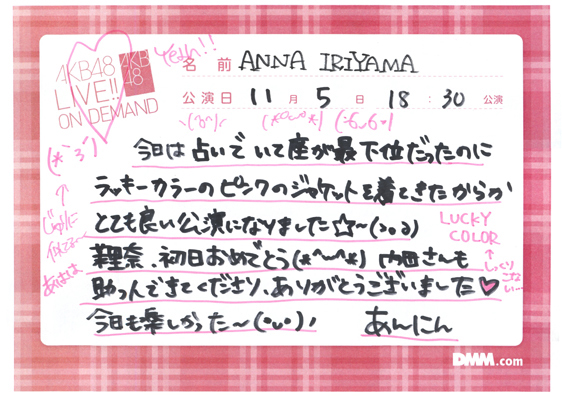 AKB48
LIVE!!
ON DEMAND
AKB
48
Yeah!!
名前 ANNA IRIYAMA
公演日 11月 5日 18:30 公演
今日は占いでいて座が最下位だったのに
ラッキーカラーのピンクのジャケットを着てきたからか
とても良い公演になりました☆～(>。a)
LUCKY
COLOR
↑
しっくり
こない…
(*˘3˘)
↑
似てる～
あはは
(*^o^*)
梨奈、初日おめでとう(*^～^*) 内田さんも
助っ人できてくださり、ありがとうございました♡
今日も楽しかった～(•ᴗ•)!
あんにん
DMM.com